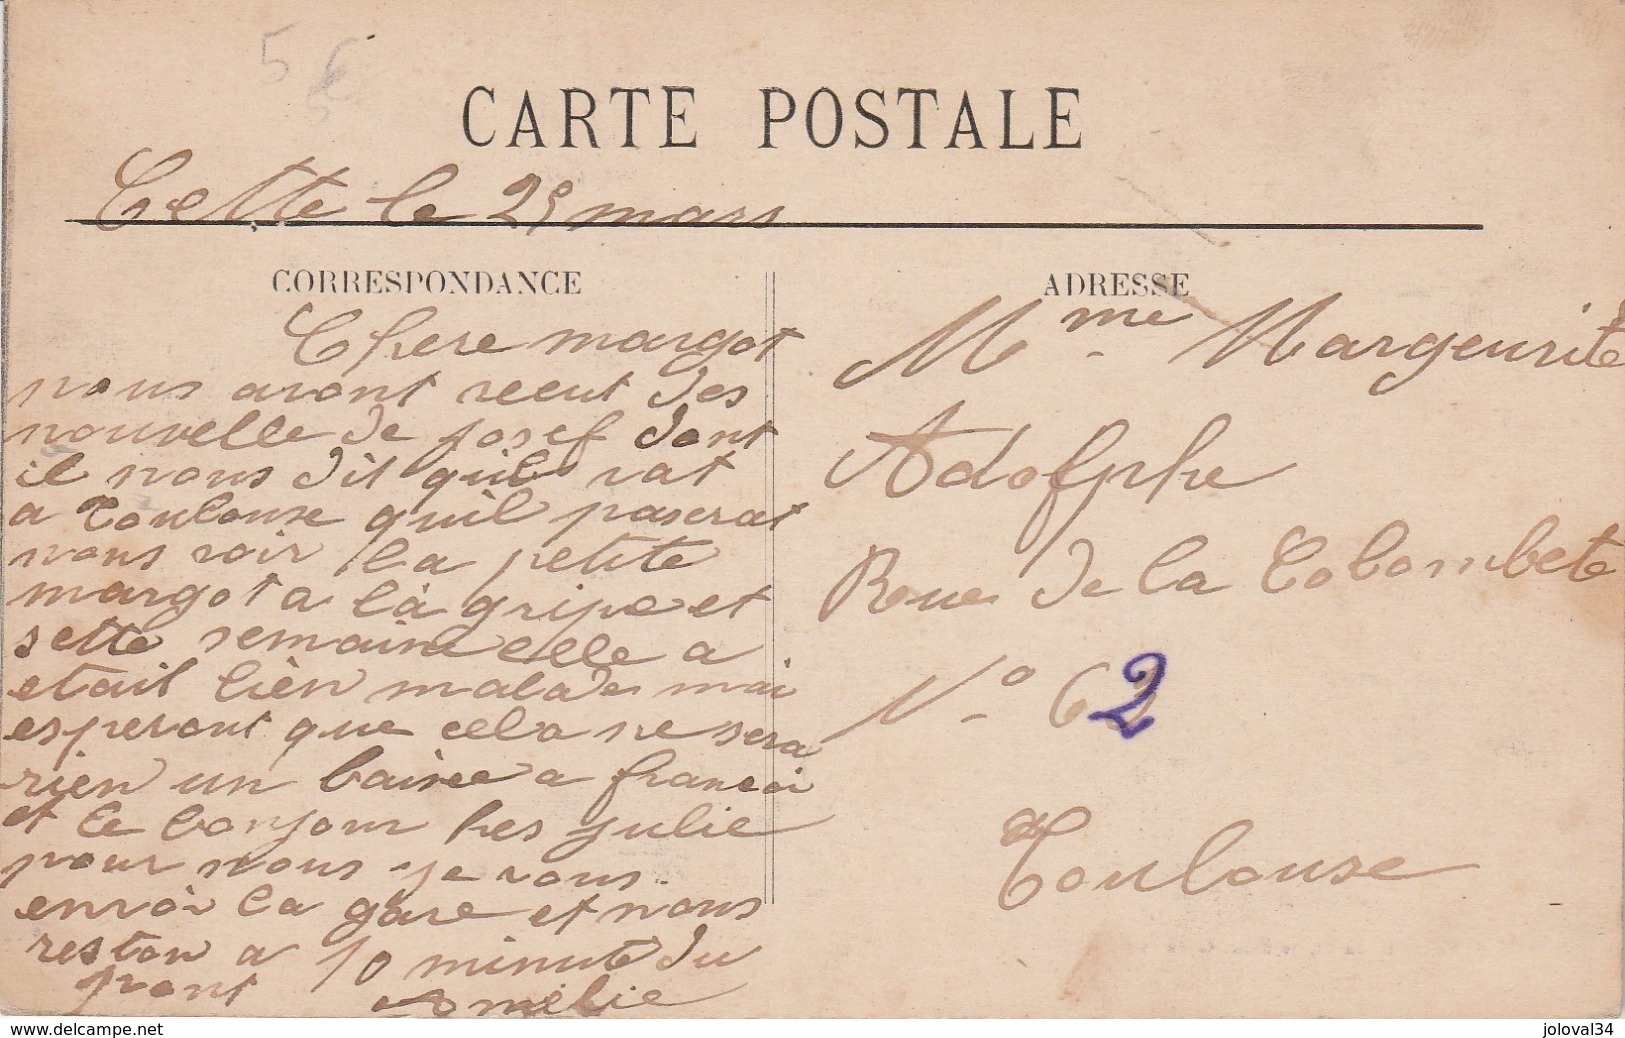 5 6
5
CARTE POSTALE
Cette le 29 mars
CORRESPONDANCE
Chere margot
nous avont recut des
nouvelle de josef dont
il nous dit quil vat
a Toulouse quil paserat
vous voir la petite
margot a là gripe et
sette semaine elle a
etait bièn malade mai
esperont que cela ne sera
rien un baisée a francoi
et le bonjour hes julie
pour vous je vous
envoi la gare et nous
reston a 10 minute du
pont Amélie
ADRESSE
Mme Margeurite
Adolphe
Rue de la Colombete
No 62
Toulouse
www.delcampe.net
joloval34